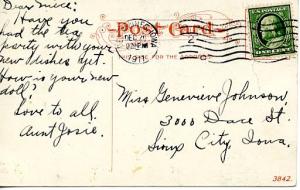 Dear Niece:
Have you
had the tea
party with your
new dishes yet.
How is your new
doll?
Love to all.
Aunt Josie.
Post Card
DEC
1911
U.S. POSTAGE
ONE CENT
Miss Genevieve Johnson,
3000 Dace St.
Sioux City Iowa.
3842.